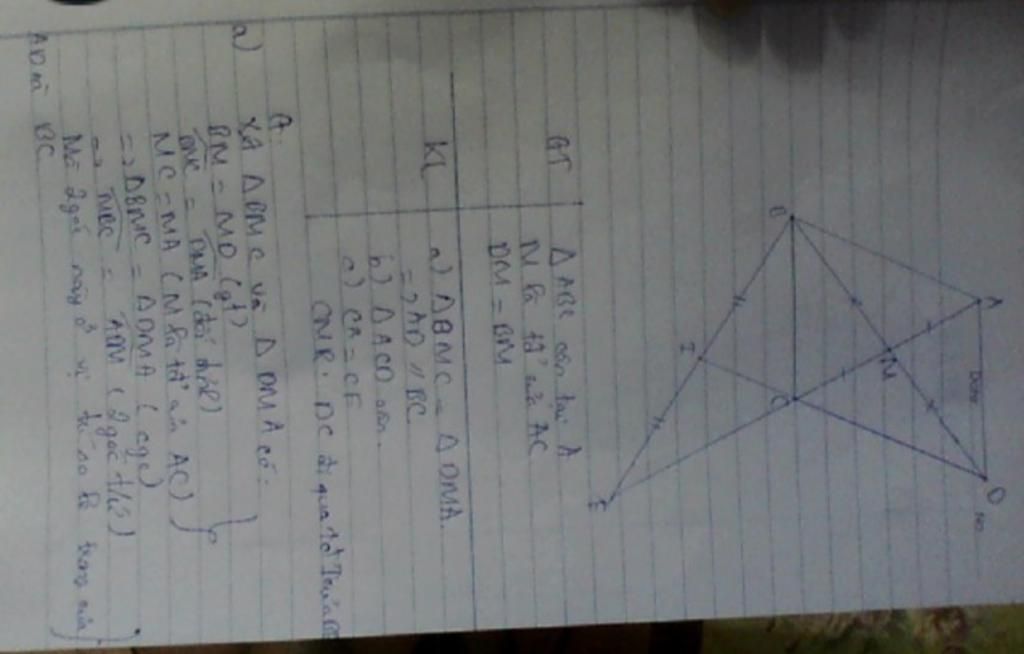 A D
M
B C
I
E
GT
Δ ABC cân tại A
M là tđ' của AC
DM = BM
KL
a) ΔBMC = Δ DMA.
=> AD // BC
b) Δ ACD cân.
c) CA = CE
CMR: DC đi qua tđ' I của BE
a)
Xét Δ BMC và Δ DMA có:
BM = MD (gt)
BMC = DMA (đối đỉnh)
MC = MA (M là tđ' của AC)
=> ΔBMC = Δ DMA (cgc)
=> MBC = ADM (2 góc t/ứ)
Mà 2 góc này ở vị trí so le trong của
AD và BC